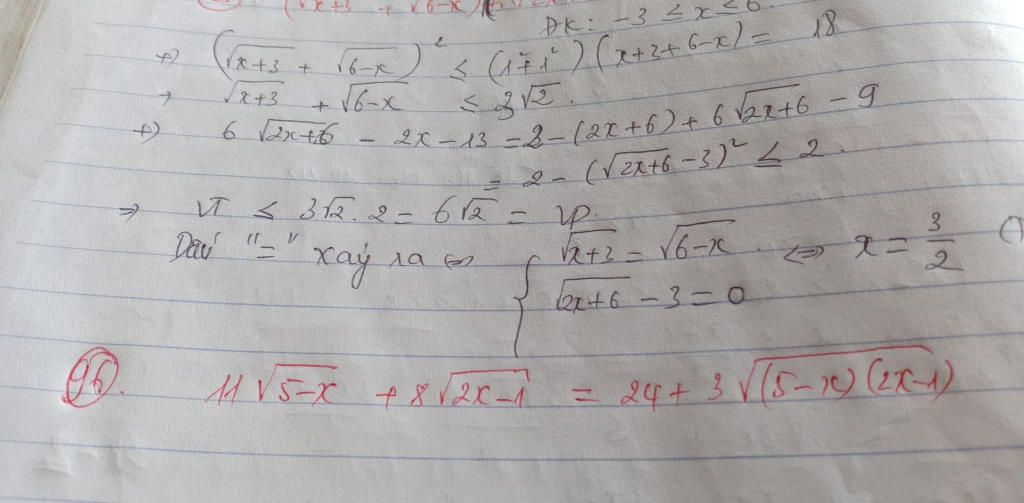 (√x+3 + √6-x)
ĐK: -3 ≤ x ≤ 6.
+) (√x+3 + √6-x)² ≤ (1²+1²)(x+3+6-x) = 18
→ √x+3 + √6-x ≤ 3√2.
+) 6√2x+6 - 2x - 13 = 2 - (2x+6) + 6√2x+6 - 9
= 2 - (√2x+6 - 3)² ≤ 2.
⇒ VT ≤ 3√2.2 = 6√2 = VP.
Dấu "=" xảy ra ⇔ { √x+3 = √6-x ⇔ x = 3/2
√2x+6 - 3 = 0
96. 11√5-x + 8√2x-1 = 24 + 3√(5-x)(2x-1)